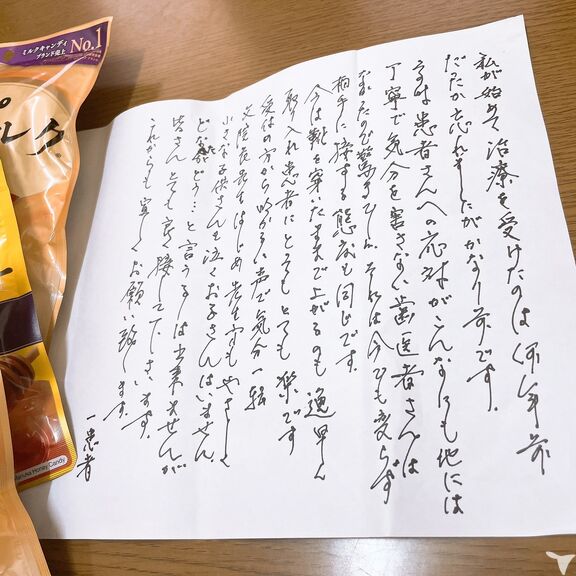 ミルクキャンディ
ブランド売上
No.1
ルク
Manuka Honey Candy
私が始めて治療を受けたのは何年前
だったか忘れましたがかなり前です。
患者さんへの応対がこんなにも他には
丁寧で気分を害さない歯医者さんは
なかったので驚きでした それは今でも変らず
相手に接する態度も同じです。
今は靴を穿いたままで上がるのも逸早く
取り入れ患者にとってもとても楽です
受付の方から明かるい声で気分一転
院長先生はじめ先生方もやさしく
小さな子供さんも泣くお子さんはいません
どなたがどう…と言うのは出来ませんが
皆さんとても良く接して下さいます。
これからも宜しくお願い致します。
一患者